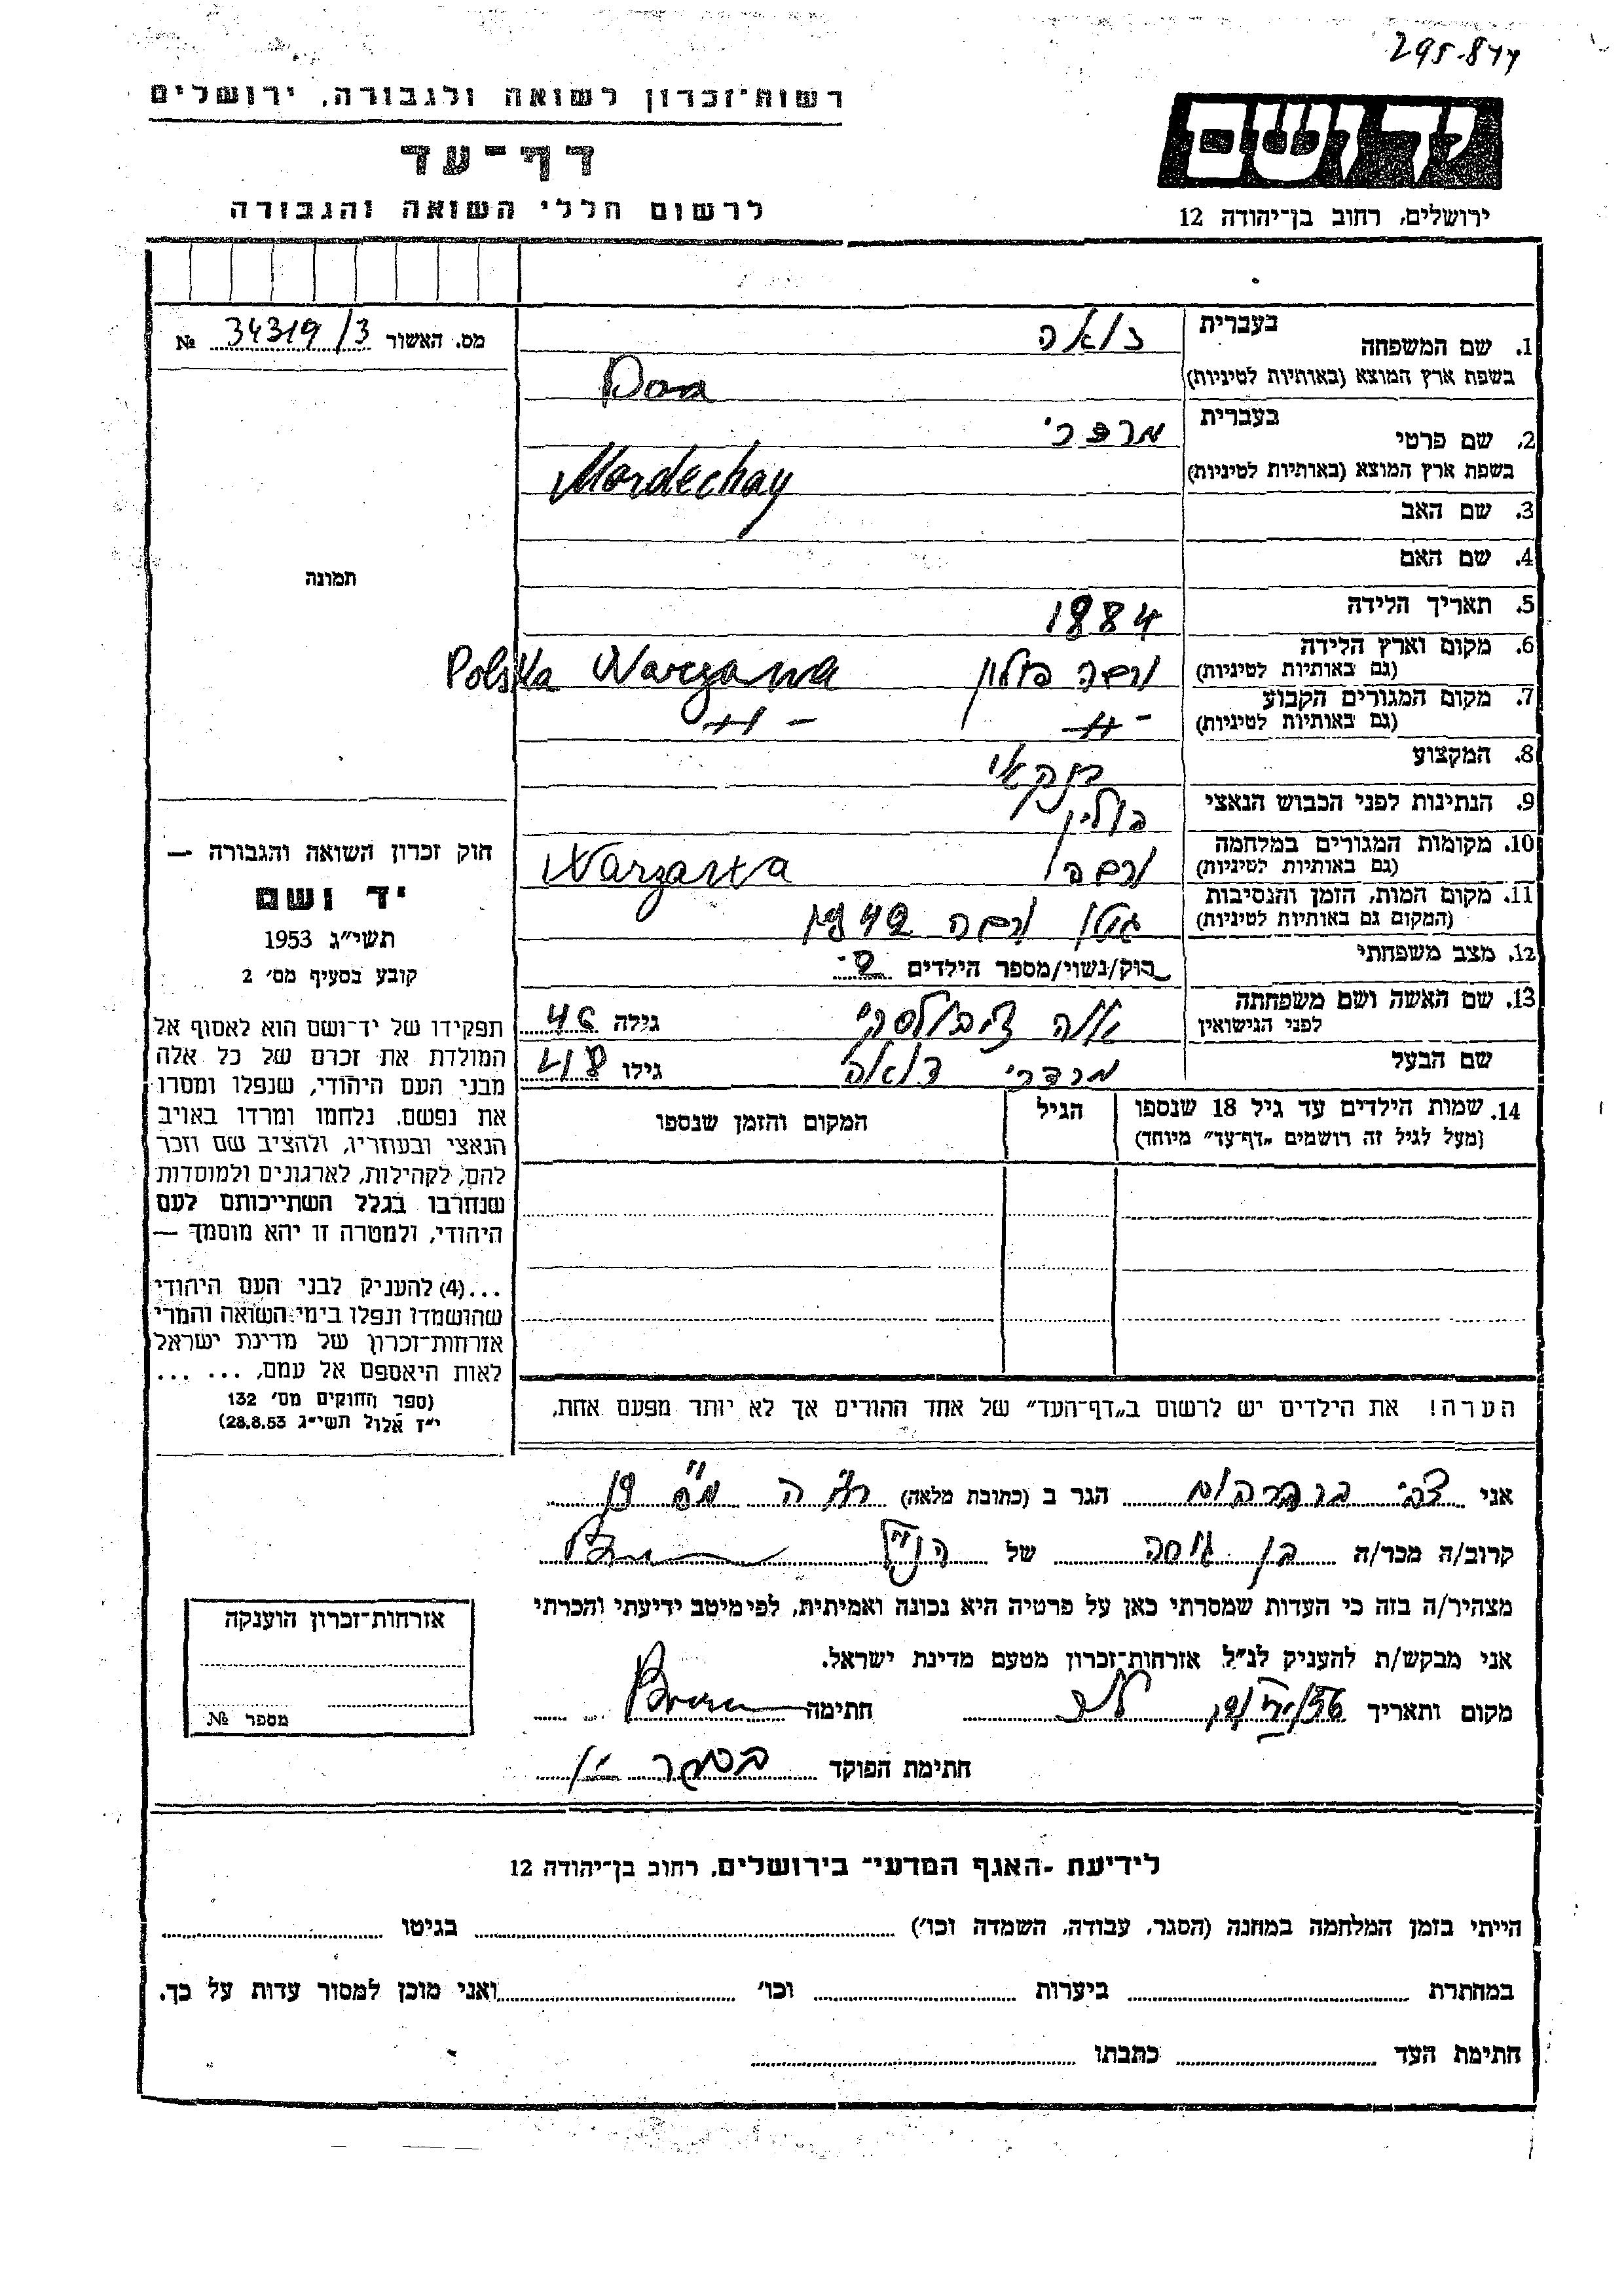 295-844
רשות־זכרון לשואה ולגבורה, ירושלים
דף־עד
לרשום חללי השואה והגבורה
יד ושם
ירושלים, רחוב בן־יהודה 12
מס. האשור 34319/3 №
1. שם המשפחה בעברית
בשפת ארץ המוצא (באותיות לטיניות)
2. שם פרטי בעברית מרדכי
בשפת ארץ המוצא (באותיות לטיניות) Mordechay
3. שם האב
4. שם האם
5. תאריך הלידה 1884
6. מקום וארץ הלידה
(גם באותיות לטיניות) ורשה פולין Warszawa Polska
7. מקום המגורים הקבוע
(גם באותיות לטיניות) -"- -"-
8. המקצוע בנקאי
9. הנתינות לפני הכבוש הנאצי פולין
10. מקומות המגורים במלחמה
(גם באותיות לטיניות) ורשה Warszawa
11. מקום המות, הזמן והנסיבות
(המקום גם באותיות לטיניות) גיטו ורשה 1942
12. מצב משפחתי רוק/נשוי/מספר הילדים 2
13. שם האשה ושם משפחתה
לפני הנישואין גילה 46
שם הבעל מרדכי גילו 48
14. שמות הילדים עד גיל 18 שנספו
(מעל לגיל זה רושמים „דף־עד״ מיוחד)
הגיל
המקום והזמן שנספו
תמונה
חוק זכרון השואה והגבורה —
יד ושם
תשי״ג 1953
קובע בסעיף מס׳ 2
תפקידו של יד־ושם הוא לאסוף אל
המולדת את זכרם של כל אלה
מבני העם היהודי, שנפלו ומסרו
את נפשם, נלחמו ומרדו באויב
הנאצי ובעוזריו, ולהציב שם וזכר
להם, לקהילות, לארגונים ולמוסדות
שנחרבו בגלל השתייכותם לעם
היהודי, ולמטרה זו יהא מוסמך —
...(4) להעניק לבני העם היהודי
שהושמדו ונפלו בימי השואה והמרי
אזרחות־זכרון של מדינת ישראל
לאות היאספם אל עמם, ... ...
(ספר החוקים מס׳ 132
י״ז אלול תשי״ג 28.8.53)
הערה! את הילדים יש לרשום ב„דף־העד״ של אחד ההורים אך לא יותר מפעם אחת.
אני צבי הגר ב (כתובת מלאה)
קרוב/ה מכר/ה בן של הנ״ל
מצהיר/ה בזה כי העדות שמסרתי כאן על פרטיה היא נכונה ואמיתית, לפי מיטב ידיעתי והכרתי
אני מבקש/ת להעניק לנ״ל אזרחות־זכרון מטעם מדינת ישראל.
מקום ותאריך חתימה
חתימת הפוקד
אזרחות־זכרון הוענקה
מספר №
לידיעת ־האגף המדעי־ בירושלים, רחוב בן־יהודה 12
הייתי בזמן המלחמה במחנה (הסגר, עבודה, השמדה וכו׳) בגיטו
במחתרת ביערות וכו׳ ואני מוכן למסור עדות על כך.
חתימת העד כתבתו